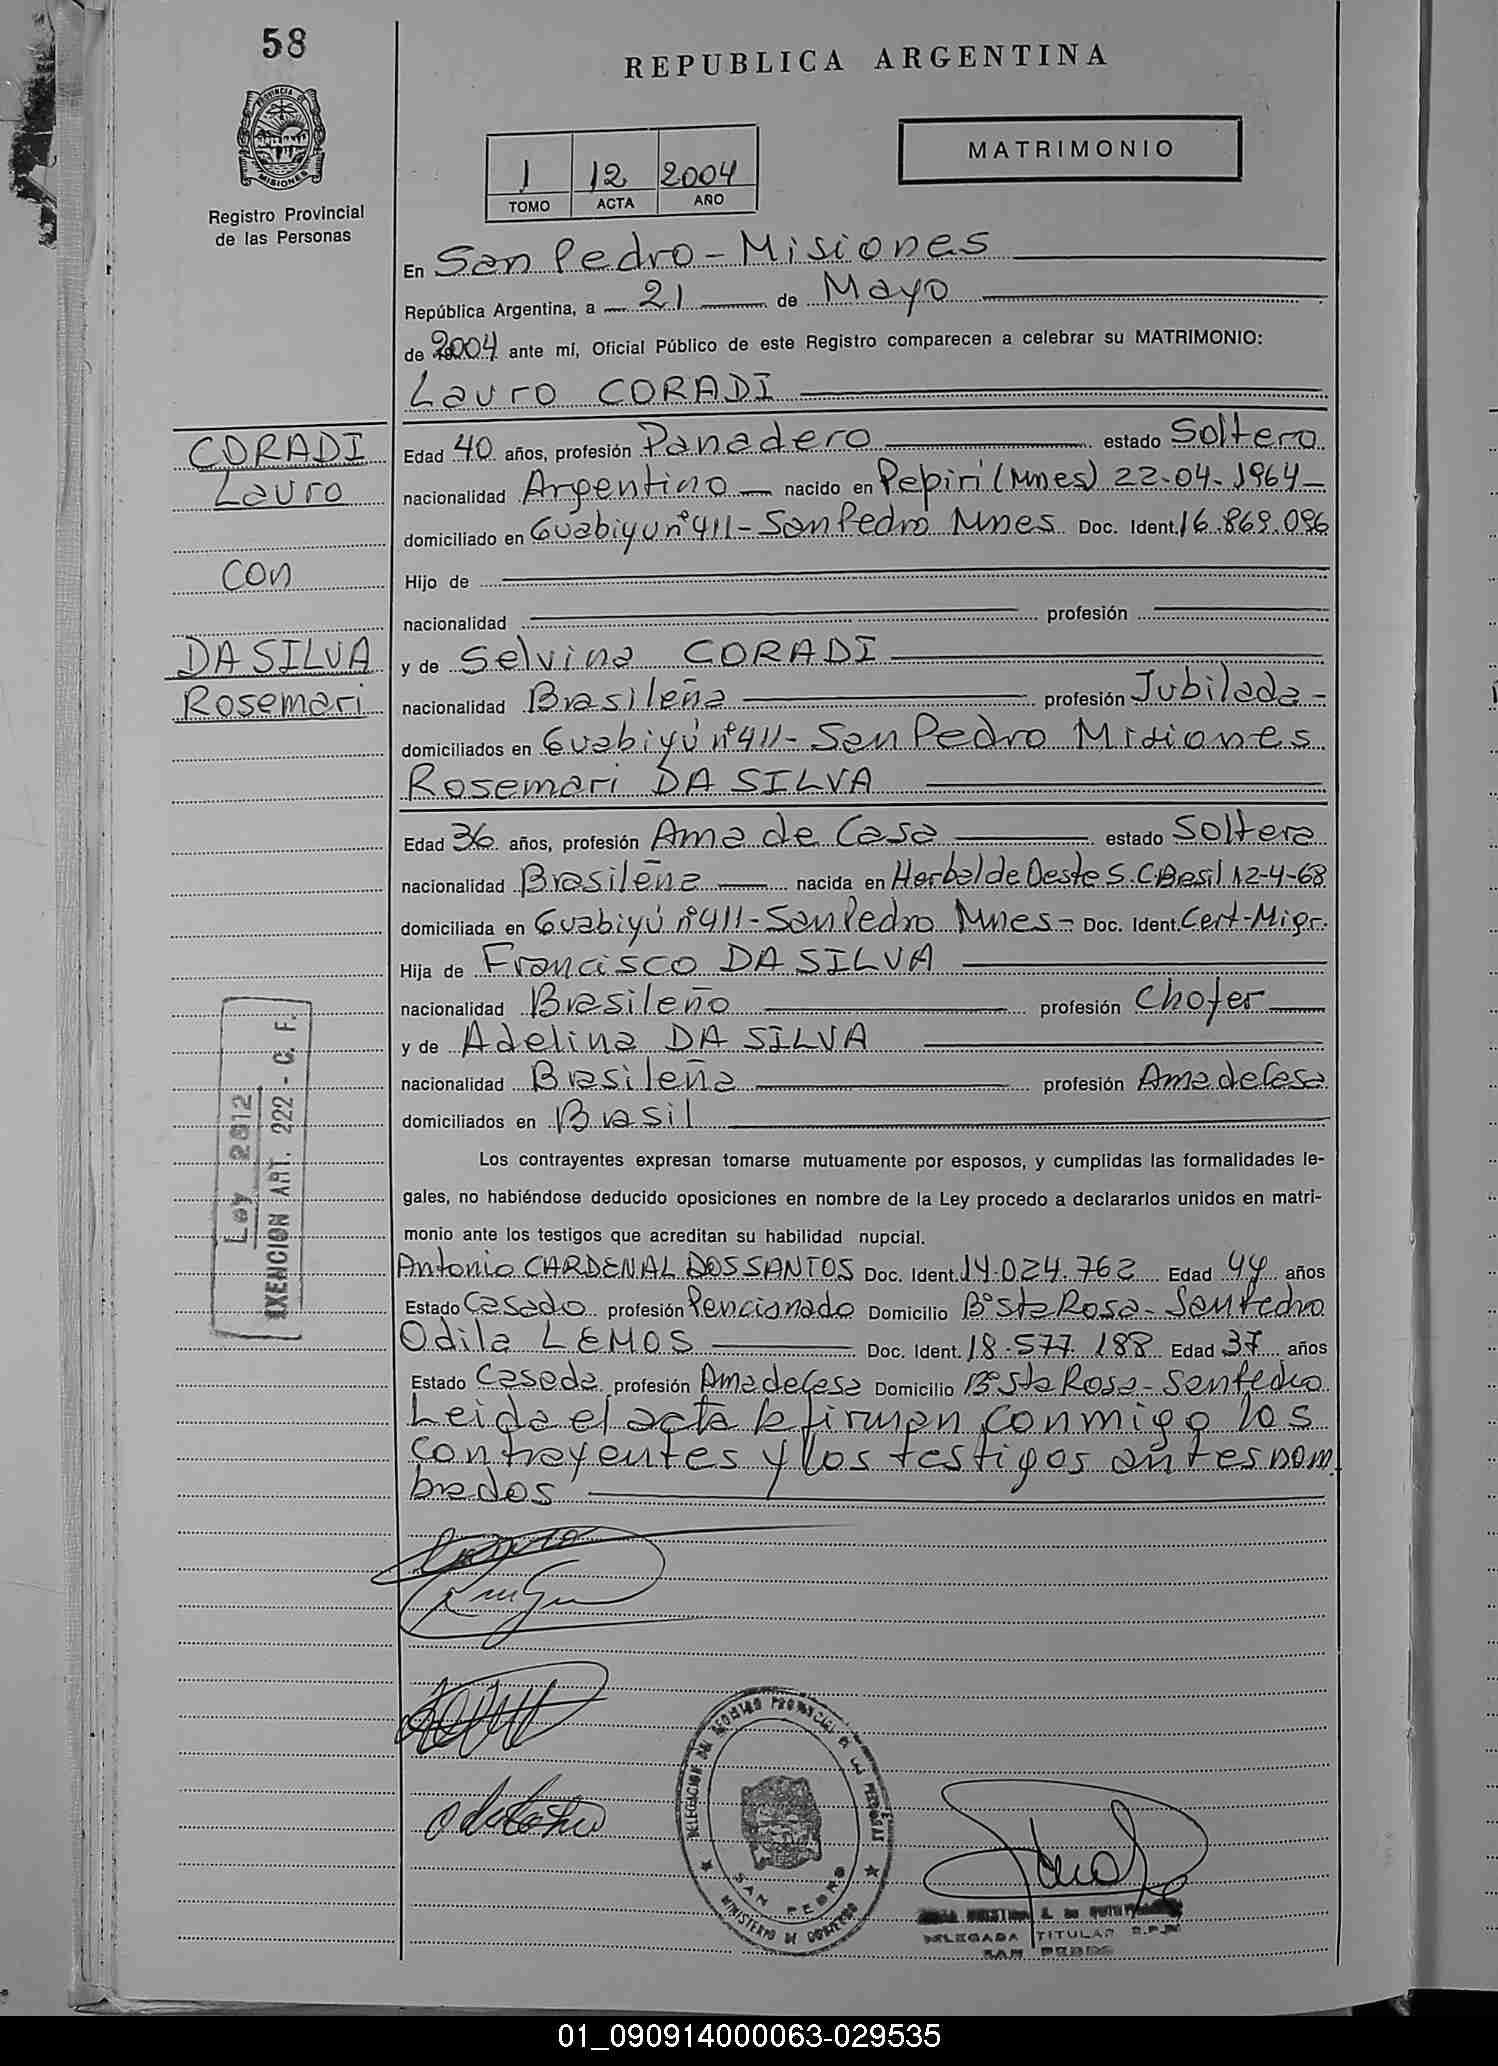 58
REPUBLICA ARGENTINA
PROVINCIA DE
MISIONES
Registro Provincial
de las Personas
MATRIMONIO
1 12 2004
TOMO ACTA AÑO
En San Pedro - Misiones
República Argentina, a 21 de Mayo
de 2004 ante mí, Oficial Público de este Registro comparecen a celebrar su MATRIMONIO:
Lauro CORADI
CORADI
Lauro
con
DA SILVA
Rosemari
Edad 40 años, profesión Panadero estado Soltero
nacionalidad Argentino nacido en Pepirí (Mnes) 22-04-1964
domiciliado en Guabiyu nº 411 - San Pedro Mnes Doc. Ident. 16.869.096
Hijo de
nacionalidad profesión
y de Selvina CORADI
nacionalidad Brasileña profesión Jubilada
domiciliados en Guabiyú nº 411 - San Pedro Misiones
Rosemari DA SILVA
Edad 36 años, profesión Ama de Casa estado Soltera
nacionalidad Brasileña nacida en Herbal de Oeste S.C. Brasil 12-4-68
domiciliada en Guabiyú nº 411 - San Pedro Mnes - Doc. Ident. Cert-Migr.
Hija de Francisco DA SILVA
nacionalidad Brasileño profesión Chofer
y de Adelina DA SILVA
nacionalidad Brasileña profesión Ama de Casa
domiciliados en Brasil
Ley 2812
EXENCION ART. 222 - C. F.
Los contrayentes expresan tomarse mutuamente por esposos, y cumplidas las formalidades le-
gales, no habiéndose deducido oposiciones en nombre de la Ley procedo a declararlos unidos en matri-
monio ante los testigos que acreditan su habilidad nupcial.
Antonio CARDENAL DOS SANTOS Doc. Ident. 14.024.762 Edad 44 años
Estado Casado profesión Pencionado Domicilio Bº Sta Rosa - San Pedro
Odila LEMOS Doc. Ident. 18.577.188 Edad 37 años
Estado Casada profesión Ama de Casa Domicilio Bº Sta Rosa - San Pedro
Leida el acta la firman conmigo los
contrayentes y los testigos antes nom
brados
DELEGACION DEL REGISTRO PROVINCIAL DE LAS PERSONAS
SAN PEDRO
MINISTERIO DE GOBIERNO
DELEGADA TITULAR R.P.P.
SAN PEDRO
01_090914000063-029535